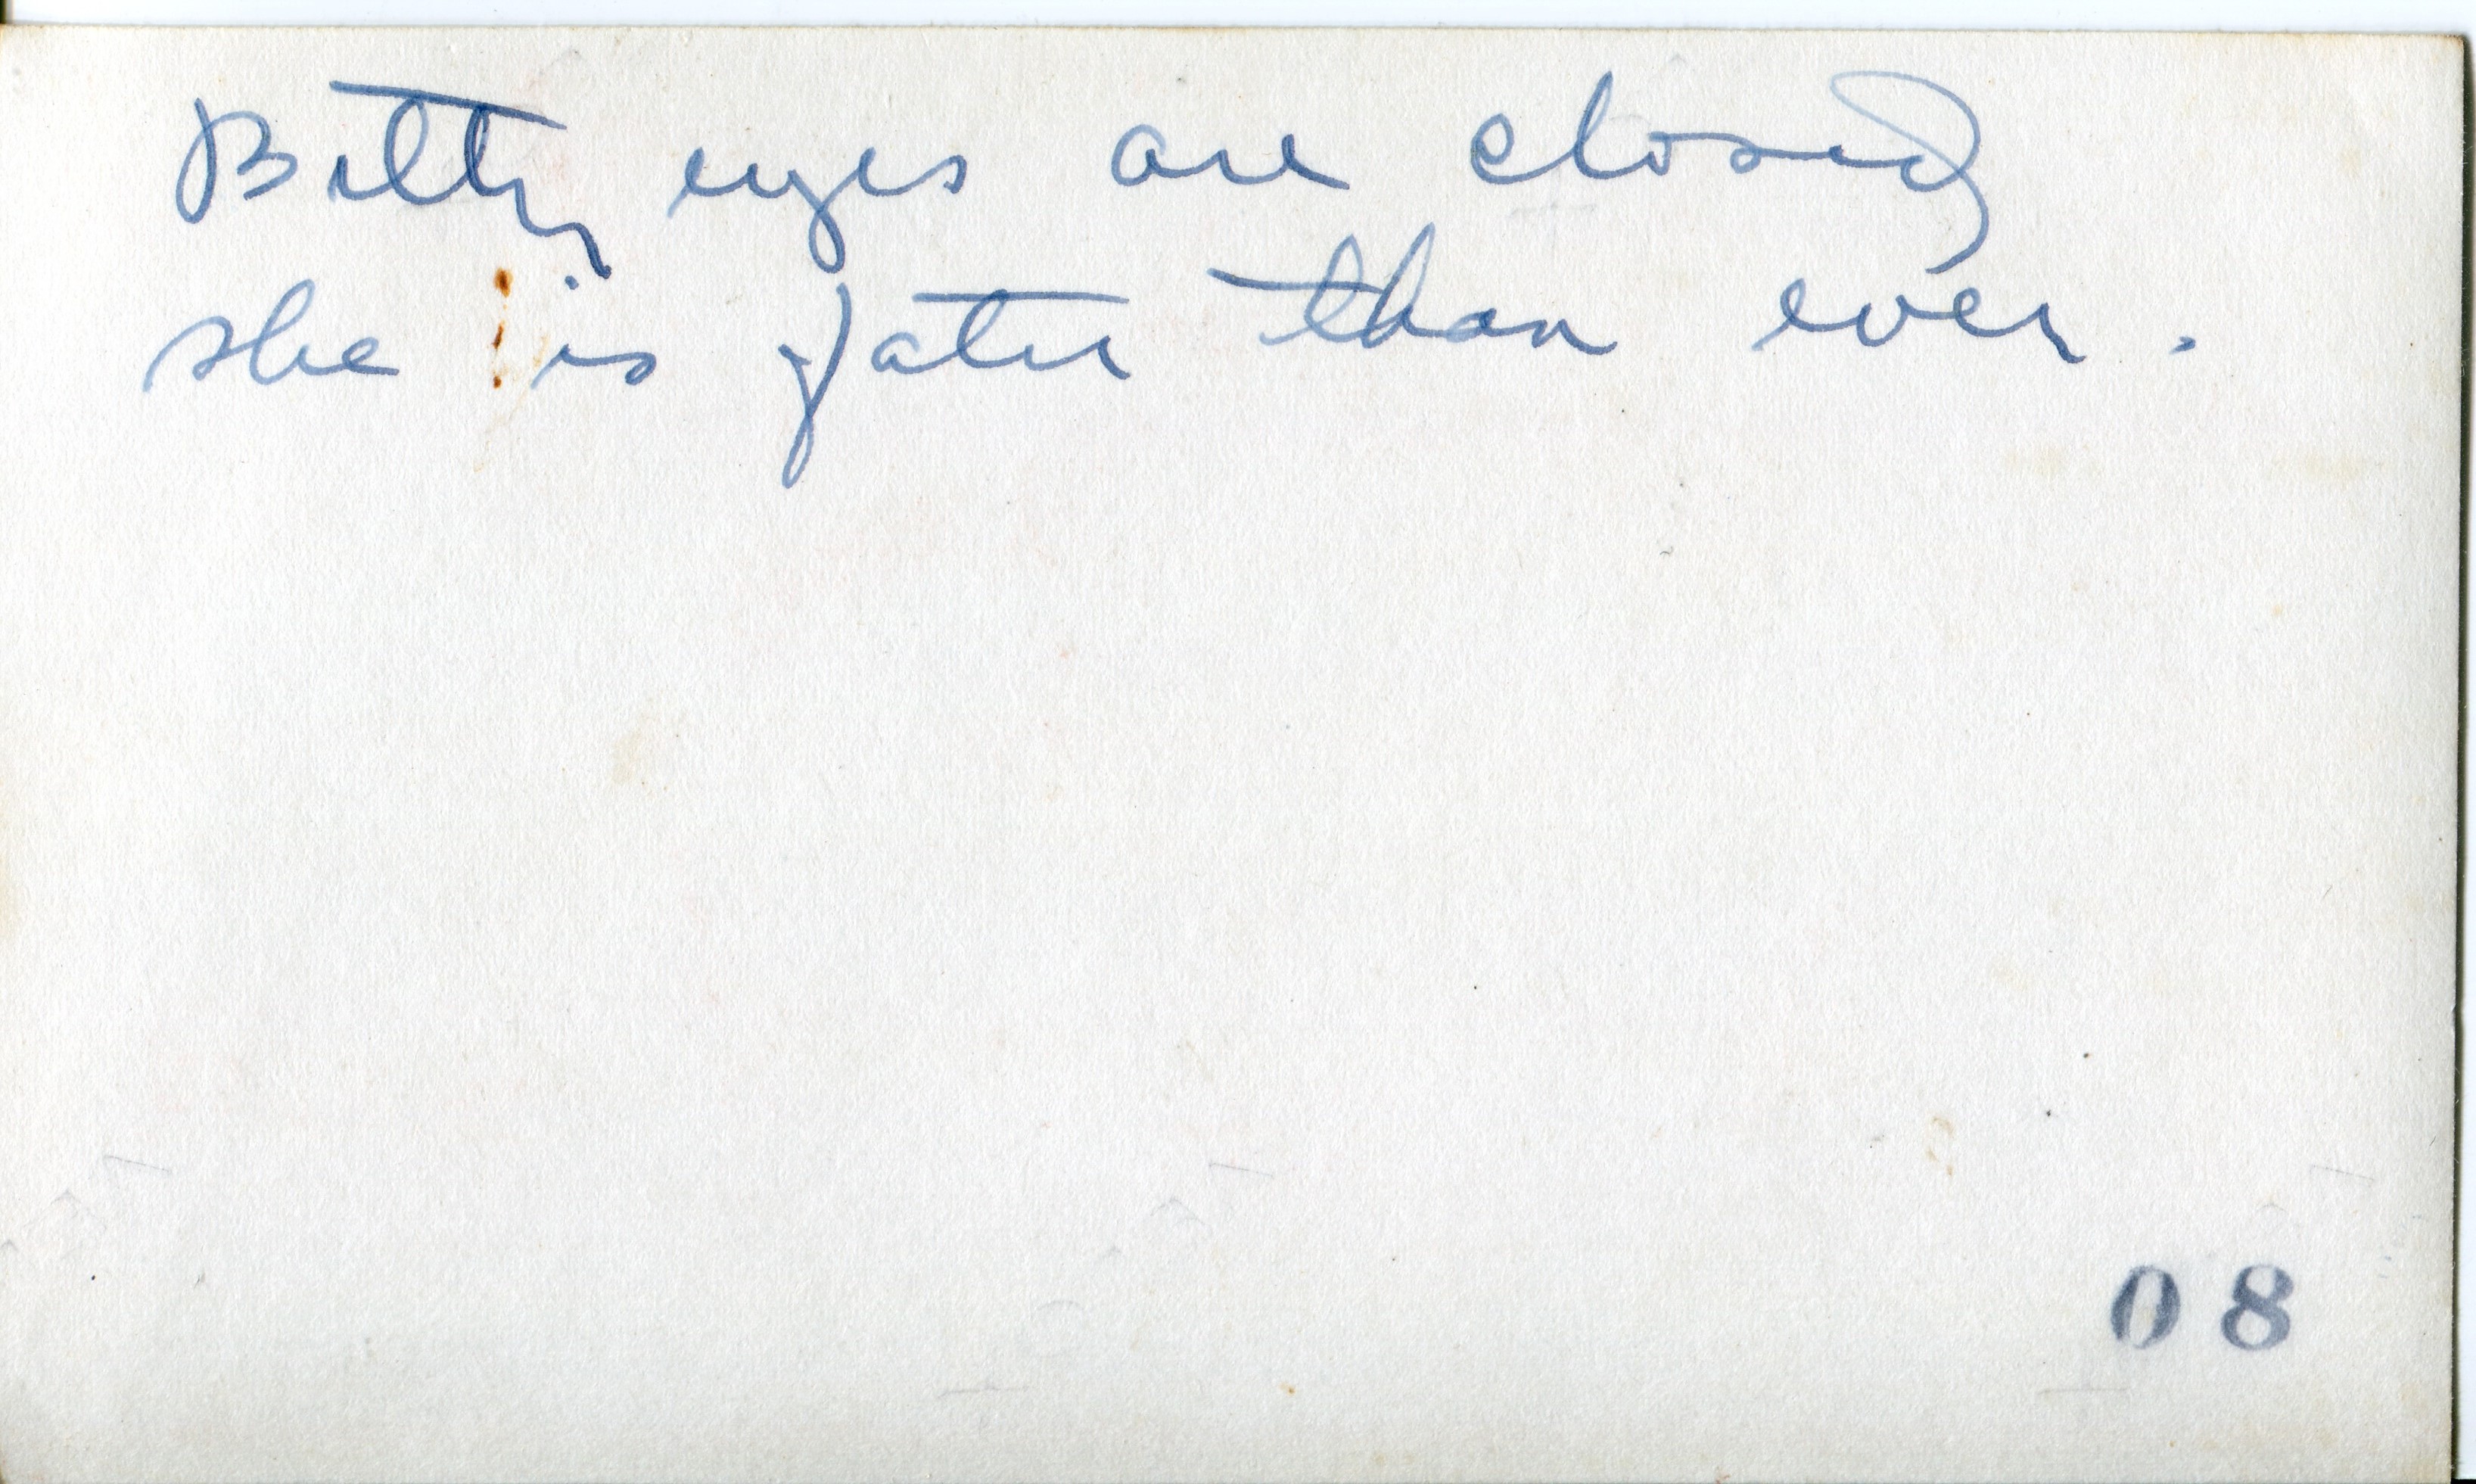 Betty eyes are closed
she is fater than ever.
08